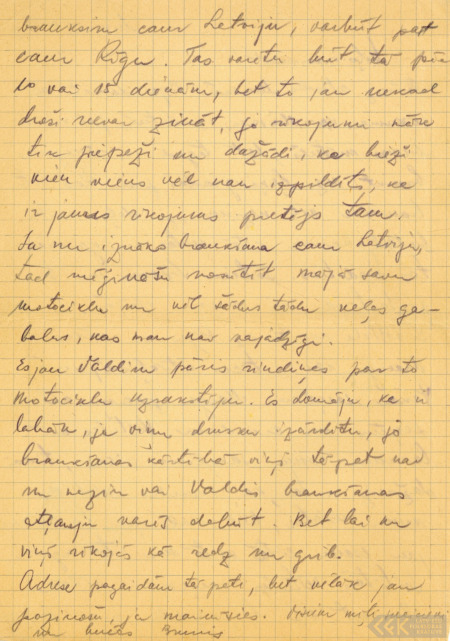 brauksim caur Latviju, varbūt pat
caur Rīgu. Tas varētu būt tā pēc
10 vai 15 dienām, bet to jau nekad
droši nevar zināt, jo rīkojumi nāk
tik piepeži un dažādi, ka bieži
vien viens vēl nav izpildīts, ka
ir jauns rīkojums pretējs tam.
Ja nu iznāks braukšana caur Latviju,
tad mēģināšu nosūtīt mājā savu
motociklu un vēl šādus tādus veļas ga-
balus, kas man nav vajadzīgi.
Es jau Valdim pāris rindiņas par to
motociklu uzrakstīju. Es domāju, ka ir
labāk, ja viņu drusku izārdītu, jo
braukšanas kārtībā viņš tāpat nav
un nezin vai Valdis braukšanas
atļauju varēs dabūt. Bet lai nu
viņš rīkojās kā redz un grib.
Adrese pagaidām tā pati, bet vēlāk jau
paziņošu, ja mainīsies. Visus mīļi
un bučo